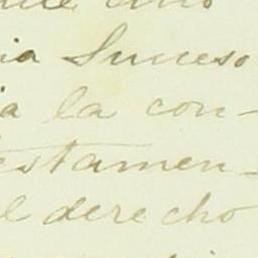 ia Suceso
a la con-
estamen-
el derecho